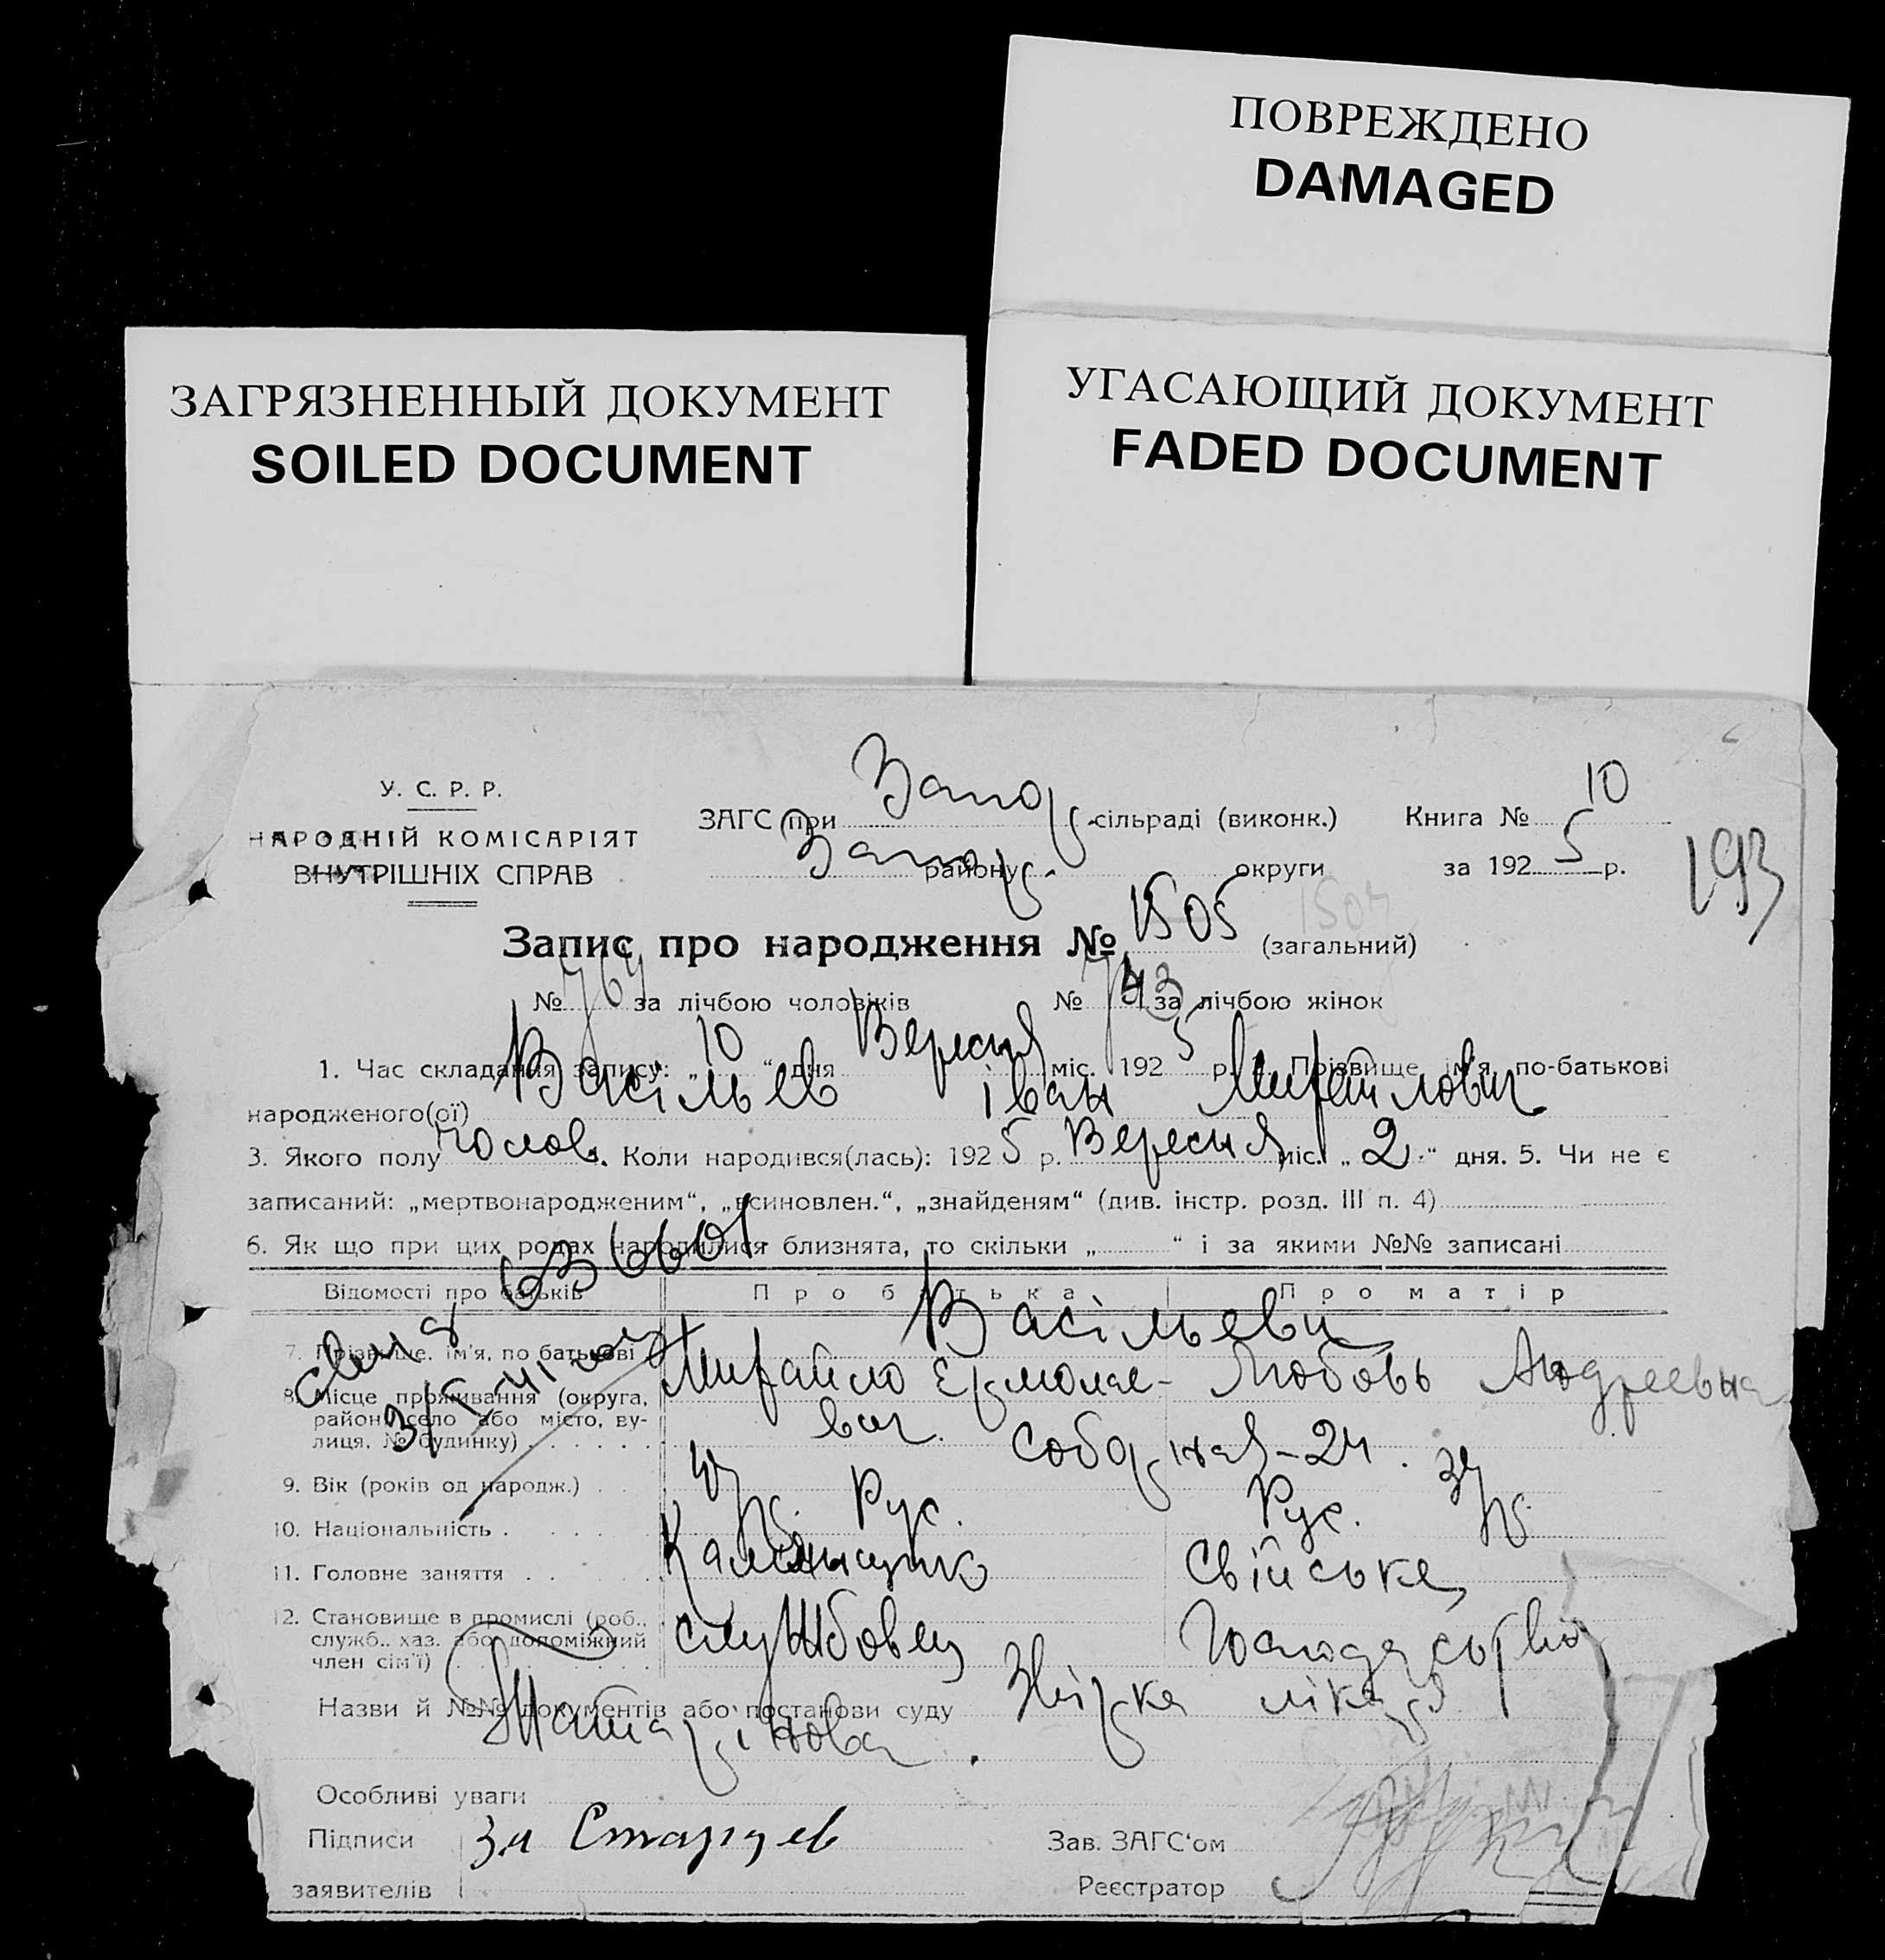 ПОВРЕЖДЕНО
DAMAGED
ЗАГРЯЗНЕННЫЙ ДОКУМЕНТ
SOILED DOCUMENT
УГАСАЮЩИЙ ДОКУМЕНТ
FADED DOCUMENT
У. С. Р. Р.
НАРОДНІЙ КОМІСАРІЯТ
ВНУТРІШНІХ СПРАВ
ЗАГС при Запор. сільраді (виконк.) Книга № 10
Запор. району округи за 1925 р.
193
Запис про народження № 1505 (загальний)
№ 764 за лічбою чоловіків № 743 за лічбою жінок
1. Час складання запису: „10“ дня Вересня міс. 1925 р. 2. Прізвище, ім'я, по-батькові
народженого(ої) Васільев Іван Михайлович
3. Якого полу чолов. 4. Коли народився(лась): 1925 р. Вересня міс. „2“ дня. 5. Чи не є
записаний: „мертвонародженим“, „всиновлен.“, „знайденям“ (див. інстр. розд. III п. 4)
6. Як що при цих родах народилися близнята, то скільки „ “ і за якими №№ записані
Відомості про батьків Про батька Про матір
Васільеви
7. Прізвище, ім'я, по батькові Михайло Ермолае- Любовь Андреевна
вич.
8. Місце проживання (округа,
район, село або місто, ву-
лиця, № будинку) Соборная-24.
9. Вік (років од народж.) 34
10. Національність Рус. Рус.
11. Головне заняття Свійське
12. Становище в промислі (роб.,
служб., хаз. або допоміжний
член сім'ї) службовец господарство
Назви й №№ документів або постанови суду Звірка лікаря
Особливі уваги
Підписи За Старцев Зав. ЗАГС'ом
заявителів Реєстратор